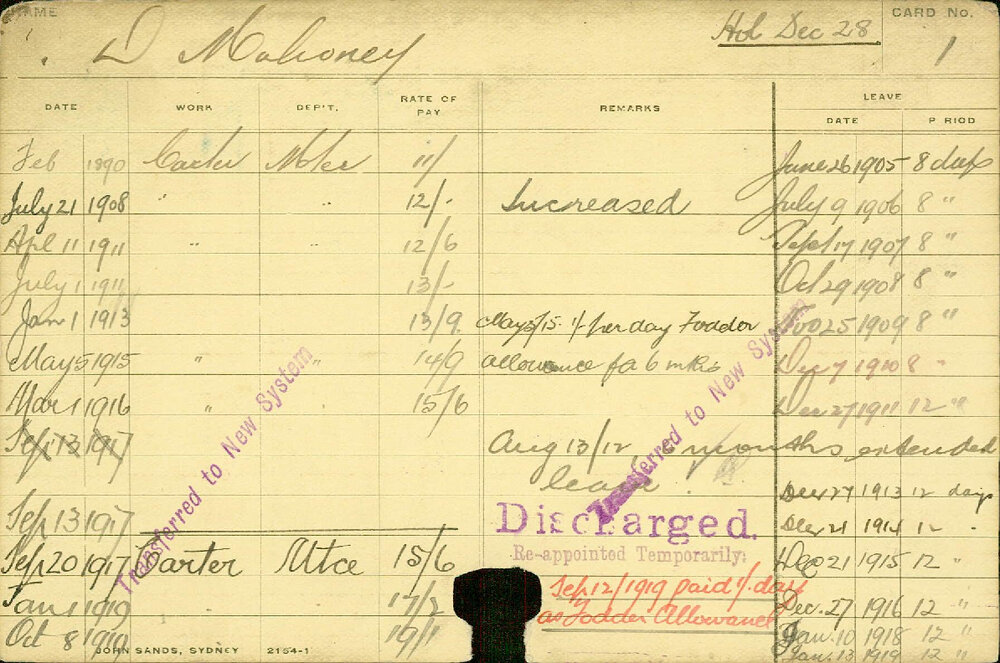 NAME
D Mahoney
Hol Dec 28
CARD No.
1
DATE WORK DEP'T. RATE OF PAY REMARKS LEAVE
DATE P RIOD
Feb 1890 Carter Mtce 11/ June 26 1905 8 days
July 21 1908 " " 12/- Increased July 9 1906 8 "
Apl 11 1911 " " 12/6 Sept 17 1907 8 "
July 1 1911 13/- Oct 29 1908 8 "
Jan 1 1913 13/9. May 5/15 1/- per day Fodder 25 1909 8 "
May 5 1915 " " 14/9 allowance for 6 mths Dec 7 1910 8 "
Mar 1 1916 " 15/6 Dec 27 1911 12 "
Sep 13 1917 Aug 13/12, 6 months extended
leave. Dec 27 1913 12 days
Sep 13 1917 Discharged. Dec 21 1914 12 "
Sep 20 1917 Carter Mtce 15/6 Re-appointed Temporarily: Dec 21 1915 12 "
Jan 1 1919 17/2 Sep 12/1919 paid 1/. day Dec. 27 1916 12 "
Oct 8 1919 19/1 as Fodder Allowance Jan. 10 1918 12 "
Jan. 13 1919 12 "
Transferred to New System
Transferred to New System
JOHN SANDS, SYDNEY 2154-1